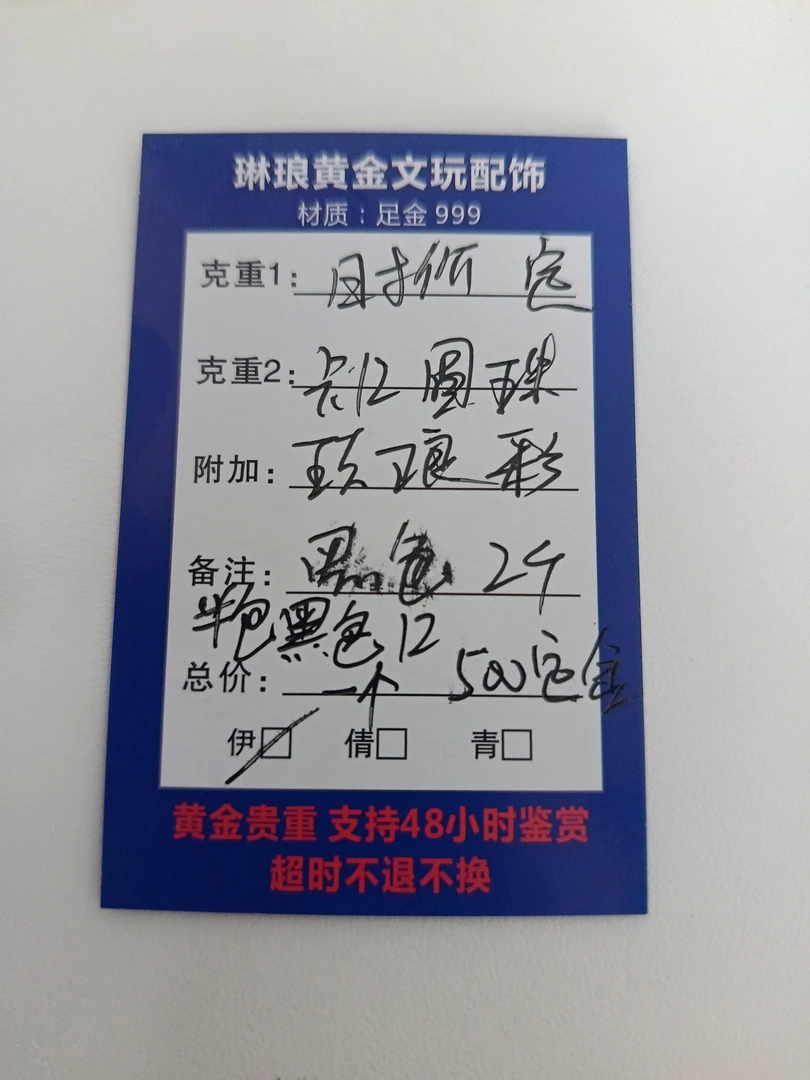 琳琅黄金文玩配饰
材质：足金 999
克重1：时价 定
克重2：卡12 圆珠
附加：珐琅彩
备注：黑色 24
半包黑色 12
总价：一个 500定金
伊 倩 青
黄金贵重 支持48小时鉴赏
超时不退不换